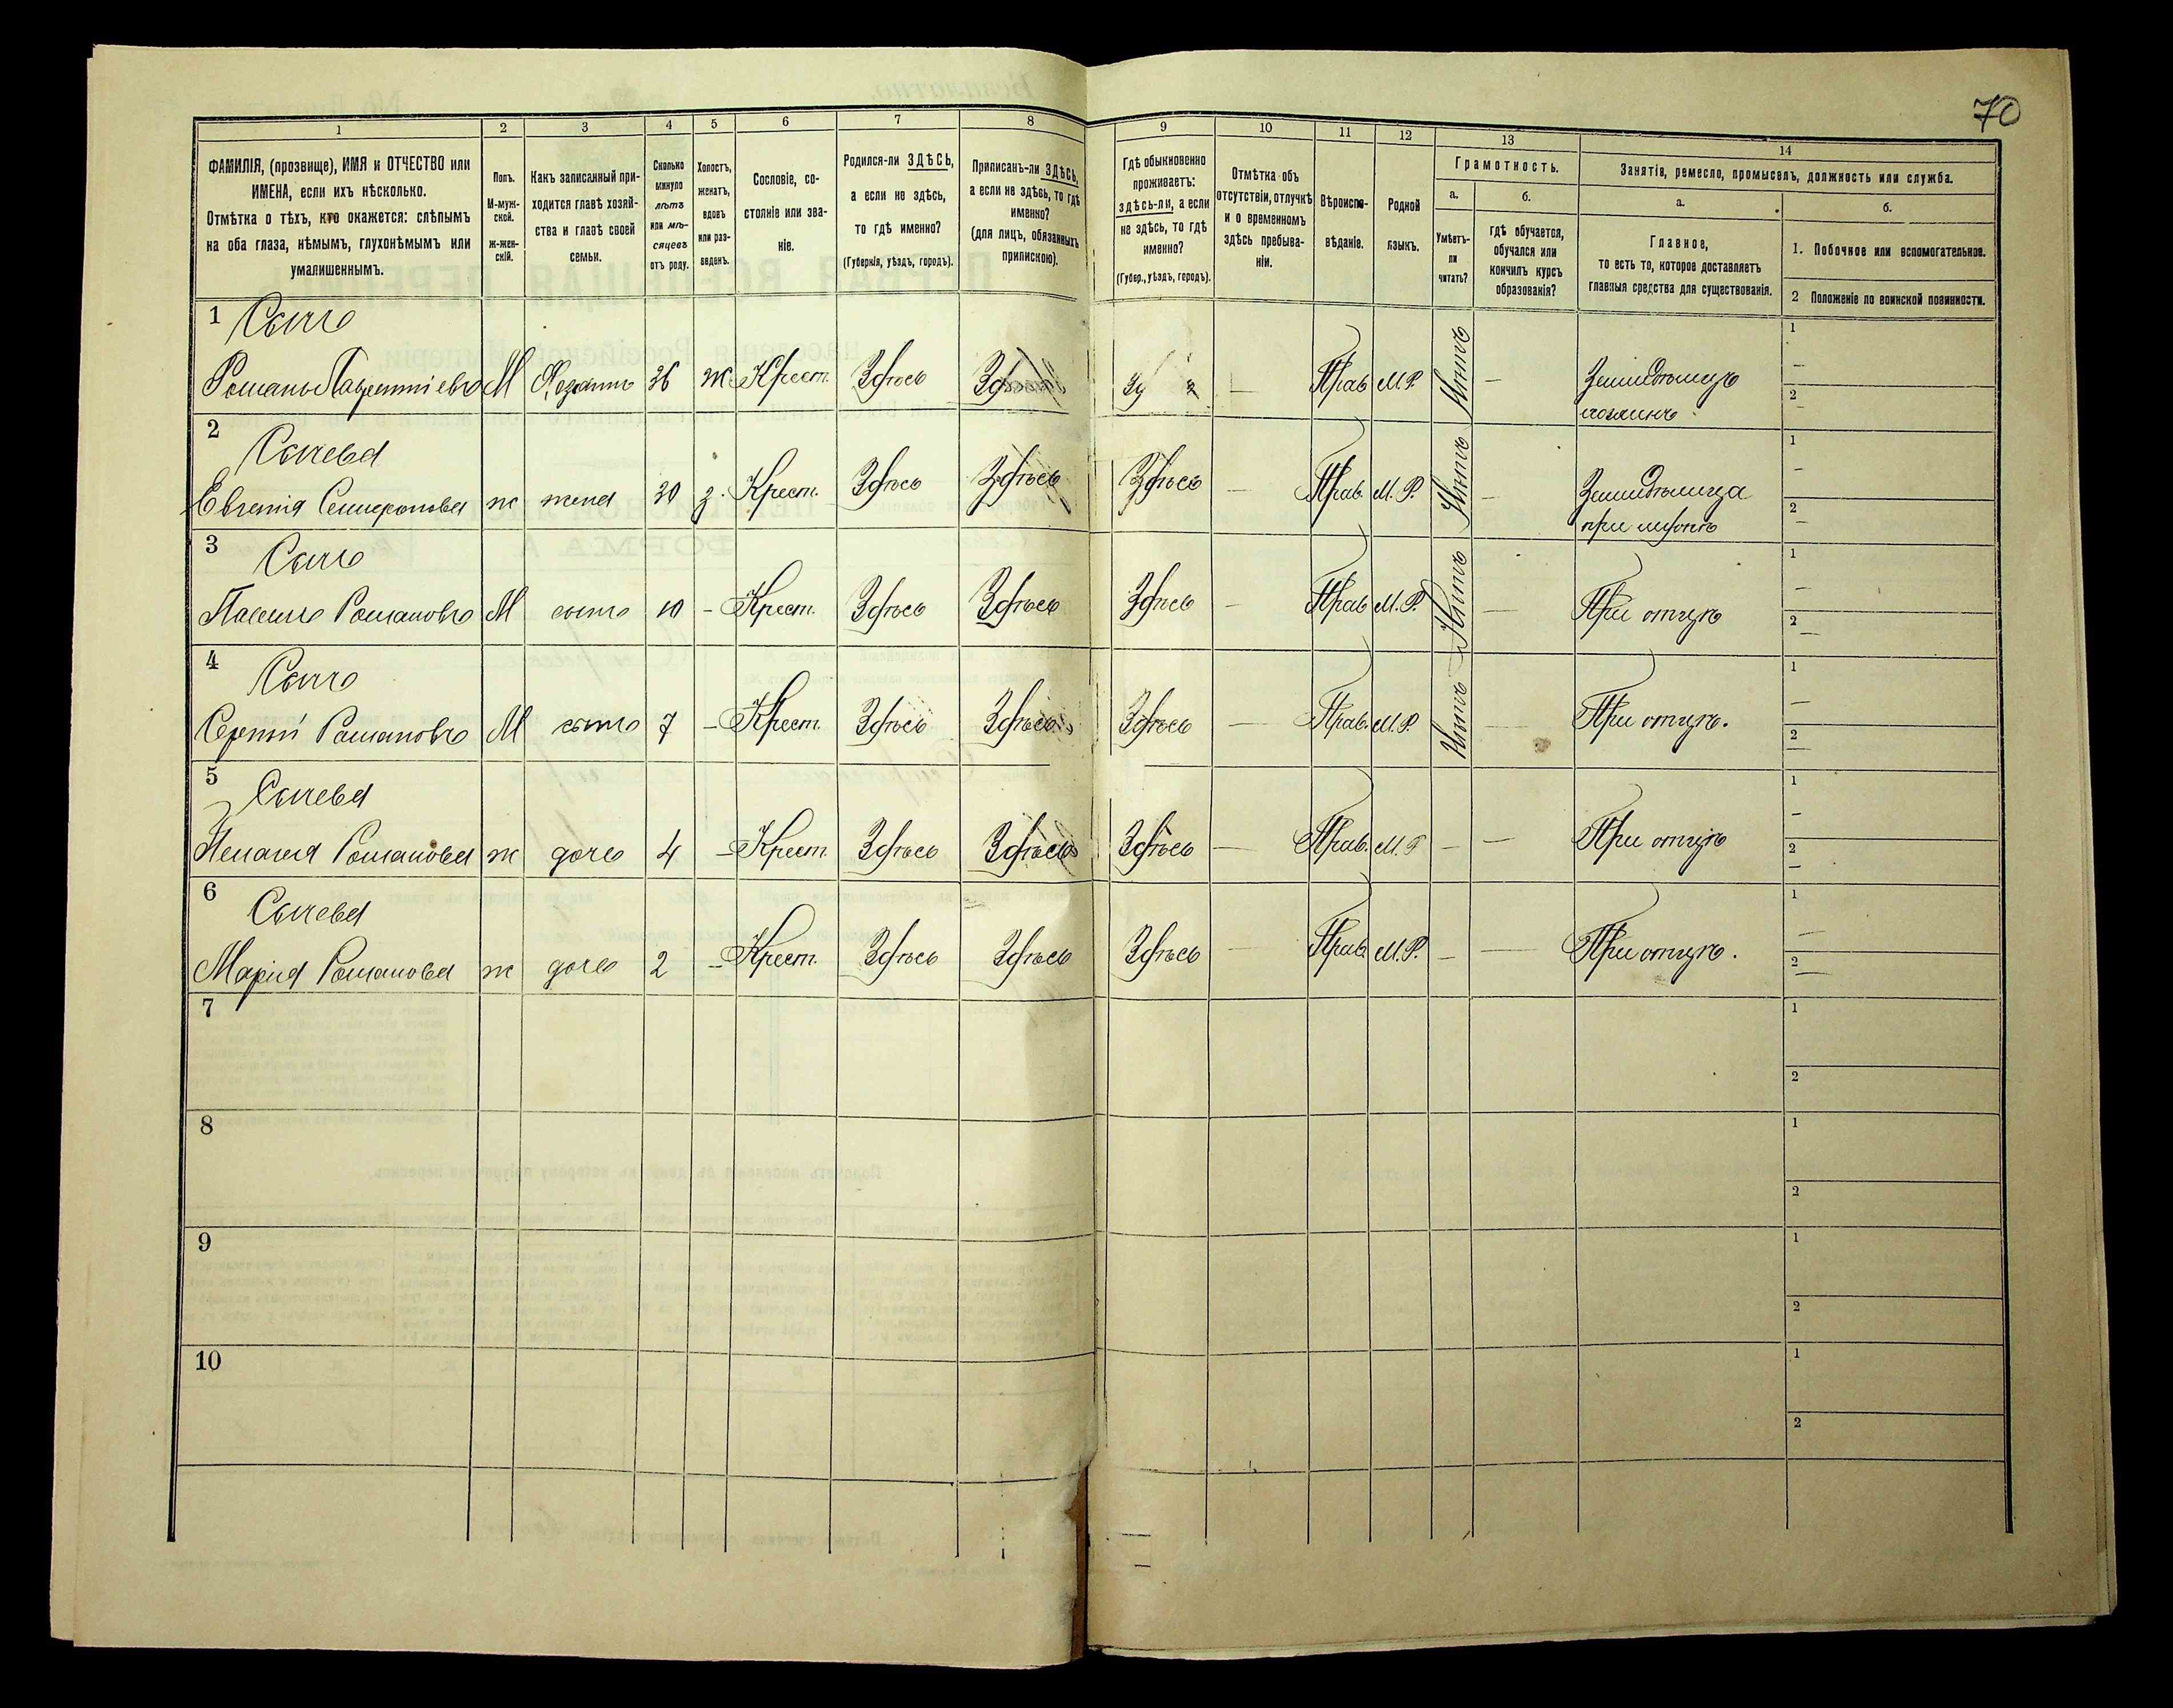 70
1 2 3 4 5 6 7 8 9 10 11 12 13 14
ФАМИЛІЯ, (прозвище), ИМЯ и ОТЧЕСТВО или
ИМЕНА, если ихъ нѣсколько.
Отмѣтка о тѣхъ, кто окажется: слѣпымъ
на оба глаза, нѣмымъ, глухонѣмымъ или
умалишеннымъ.
Полъ.
М-муж-
ской.
ж-жен-
скій.
Какъ записанный при-
ходится главѣ хозяй-
ства и главѣ своей
семьи.
Сколько
минуло
лѣтъ
или мѣ-
сяцевъ
отъ роду.
Холостъ,
женатъ,
вдовъ
или раз-
веденъ.
Сословіе, со-
стояніе или зва-
ніе.
Родился-ли ЗДѢСЬ,
а если не здѣсь,
то гдѣ именно?
(Губернія, уѣздъ, городъ).
Приписанъ-ли ЗДѢСЬ,
а если не здѣсь, то гдѣ
именно?
(для лицъ, обязанныхъ
припискою).
Гдѣ обыкновенно
проживаетъ:
здѣсь-ли, а если
не здѣсь, то гдѣ
именно?
(Губер., уѣздъ, городъ).
Отмѣтка объ
отсутствіи, отлучкѣ
и о временномъ
здѣсь пребыва-
ніи.
Вѣроиспо-
вѣданіе.
Родной
языкъ.
Грамотность.
а.
Умѣетъ-
ли
читать?
б.
гдѣ обучается,
обучался или
кончилъ курсъ
образованія?
Занятія, ремесло, промыселъ, должность или служба.
а.
Главное,
то есть то, которое доставляетъ
главныя средства для существованія.
б.
1. Побочное или вспомогательное.
2 Положеніе по воинской повинности.
1 Сычъ
Романъ Лаврентіевъ М Хозяинъ 36 ж Крест. Здѣсь Здѣсь — Прав М.Р. Нѣтъ — Земледѣлецъ
хозяинъ
1 —
2 —
2 Сычева
Евгенія Семеронова ж жена 30 з. Крест. Здѣсь Здѣсь Здѣсь — Прав. М.Р. Нѣтъ — Земледѣлица
при мужѣ
1 —
2 —
3 Сычъ
Павелъ Романовъ М сынъ 10 — Крест. Здѣсь Здѣсь Здѣсь — Прав М.Р. Нѣтъ — При отцѣ
1 —
2 —
4 Сычъ
Сергѣй Романовъ М сынъ 7 — Крест. Здѣсь Здѣсь Здѣсь — Прав. М.Р. Нѣтъ — При отцѣ.
1 —
2 —
5 Сычева
Пелагея Романова ж дочь 4 — Крест. Здѣсь Здѣсь Здѣсь — Прав. М.Р — — При отцѣ
1 —
2 —
6 Сычева
Марія Романова ж дочь 2 — Крест. Здѣсь Здѣсь Здѣсь — Прав. М.Р. — — При отцѣ.
1 —
2 —
7
1
2
8
1
2
9
1
2
10
1
2